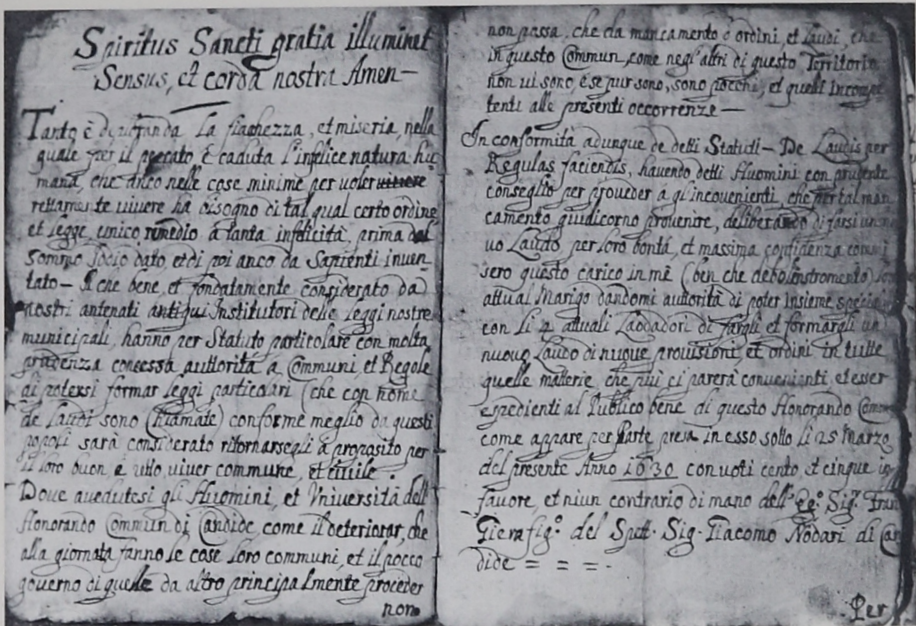 Spiritus Sancti gratia illuminet
Sensus, et corda nostra Amen—
Tanto è la fiachezza, et miseria, nella
quale per il peccato è caduta l'infelice natura hu
mana, che anco nelle cose minime per voler viuere
rettamente uiuere hà bisogno di tal qual certo ordine,
et legge unico remedio à tanta infelicità, prima dal
Sommo Iddio dato, et di poi anco da Sapienti inuen
tato— Il che bene, et fondatamente considerato da
nostri antenati antiqui Institutori delle leggi nostre
municipali, hanno per Statuto particolare con molta
prudenza concessa auttorità a Communi, et Regole
di potersi formar leggi particolari (che con nome
de Laudi sono chiamate) conforme meglio da questi
popoli sarà considerato ritornarsegli à proposito per
il loro buon è utile viuer commune, et ciuile
Doue auedutesi gli Huomini, et Vniuersità dell'
Honorando Commun di Candide, come il deteriorar, che
alla giornata fanno le cose loro communi, et il pocco
gouerno di quelle da altro principalmente proceder
non
non possa, che da mancamento d'ordini, et Laudi, che
in questo Commun, come negl'altri di questo Territorio
non ui sono, è se pur sono, sono pocchi, et quelli incompe
tenti alle presenti occorrenze—
In conformità adunque de detti Statuti— De Laudis per
Regulas faciendis, hauendo detti Huomini con prudente
conseglio per proueder à gl'inconuenienti, che per tal man
camento giudicorno prouenire, deliberando di farsi un no
uo Laudo per loro bontà, et massima confidenza commi
sero questo carico in mè (ben che debol instromento)
attual Marigo dandomi autorità di poter insieme
con li 2 attuali Laudadori di fargli et formargli un
nuouo Laudo di nuoue prouisioni, et ordini in tutte
quelle materie, che più ci parerà conuenienti, et esser
espedienti al Publico bene di questo Honorando Comun
come appare per Parte presa in esso sotto li 25 Marzo
del presente Anno 1630 con uoti cento et cinque in
fauore, et niun contrario di mano dell' Sig.
Piera fig.º del Spett. Sig. Giacomo Nodari di Can
dide = = =.
Per